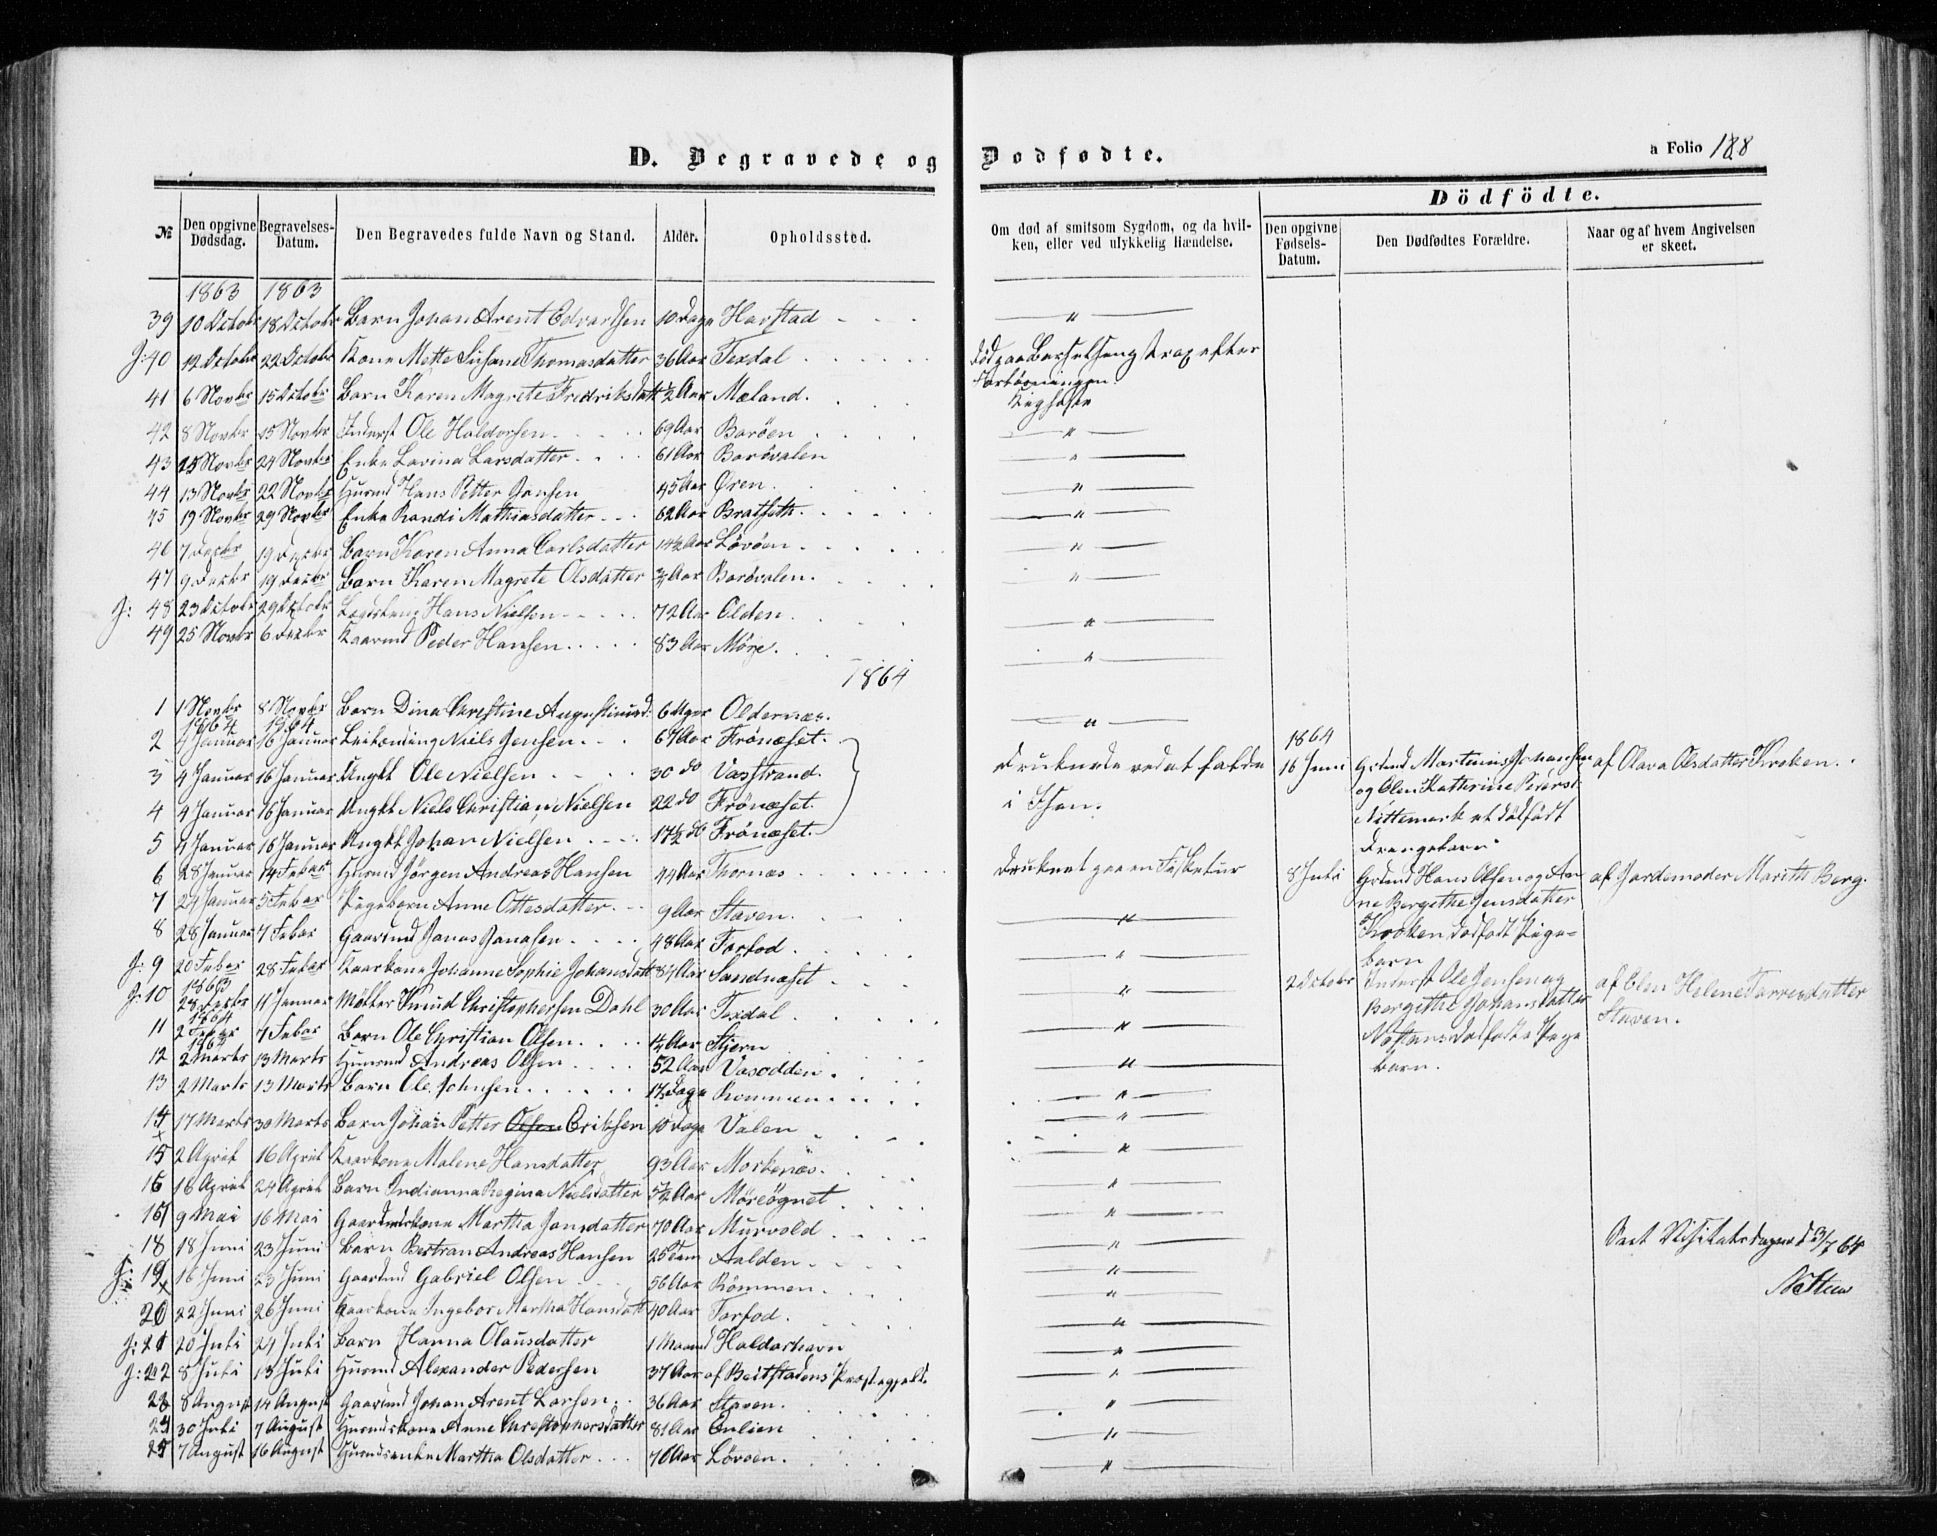 D. Begravede og Dødfødte.
a Folio 188
Dödfödte.
№
Den opgivne Dødsdag.
Begravelses-Datum.
Den Begravedes fulde Navn og Stand.
Alder.
Opholdssted.
Om død af smitsom Sygdom, og da hvil-
ken, eller ved ulykkelig Hændelse.
Den opgivne Fødsels-Datum.
Den Dødfødtes Forældre.
Naar og af hvem Angivelsen er skeet.
1863 1863
39 10 Octobr 18 Octobr Barn Johan Arent Edvardsen 10 Dage Harstad "
J: 40 12 Octobr 22 Octobr Kone Mette Susane Thomasdatter 36 Aar Texdal
41 6 Novbr 15 Octobr Barn Karen Magrete Fredriksdatt 1½ Aar Mæland.
42 8 Novbr 15 Novbr Inderst Ole Haldorsen 69 Aar Barøen "
43 15 Novbr 24 Novbr Enke Lavina Larsdatter 61 Aar Barøvalen "
44 13 Novbr 22 Novbr Huusmd Hans Petter Jansen 45 Aar Øren. "
45 19 Novbr 29 Novbr Enke Randi Mathiasdatter 62 Aar Bratseth. "
46 7 Decbr 19 Decbr Barn Karen Anna Carlsdatter 14½ Aar Løvøen "
47 9 Decbr 19 Decbr Barn Karen Magrete Olsdatter ¾ Aar Barøvalen. "
J: 48 23 Octobr 29 Octobr Hans Nielsen 72 Aar Olden. "
49 25 Novbr 6 Decbr Kaarmd Peder Hansen 83 Aar Møre. "
1864
1 1 Novbr 8 Novbr Barn Dina Christine 6 Uger Oldernæs. "
1864 1864
2 4 Januar 16 Januar Niels Jensen 67 Aar Frönæset.
3 4 Januar 16 Januar Ungkl Ole Nielsen 30 do Vasstrand.
4 4 Januar 16 Januar Ungkl Niels Christian Nielsen 22 do Frönæset.
5 4 Januar 16 Januar Ungkl Johan Nielsen 17½ do Frönæset.
Druknede ved at falde
i
6 28 Januar 14 Febar Huusmd Jørgen Andreas Hansen 44 Aar Thornæs Druknet paa en Fisketur
7 29 Januar 5 Febar Pigebarn Anne Ottesdatter 9 Aar Staven. "
8 28 Januar 7 Febar Gaardmd Jonas Jonasen 48 Aar Tarfod "
J: 9 20 Febar 28 Febar Kaarkone Johanne Sophie Johansdatt 84 Aar Sandnæset "
1863
J: 10 28 Decbr 11 Januar Møller Knud Christophersen Dahl 30 Aar Texdal "
1864
11 2 Febar 7 Febar Barn Ole Christian Olsen 1¼ Aar Stjern "
12 2 Marts 13 Marts Huusmd Andreas Olsen 52 Aar Vasodden "
13 2 Marts 13 Marts Barn Ole Johnsen 17 Dage Rømmen "
14 17 Marts 30 Marts Barn Johan Petter Olsen Eriksen 10 Dage Valen "
15 2 April 16 April Kaarkone Malene Hansdatter 93 Aar Morkenæs. "
16 16 April 24 April Barn Indianna Regina Nielsdatter 5½ Aar Møreögnet "
17 9 Mai 16 Mai Gaardmdskone Martha Jansdatter 70 Aar Murvold "
18 18 Juni 23 Juni Barn Bertran Andreas Hansen Aalden "
J: 19 16 Juni 23 Juni Gaardmd Gabriel Olsen 56 Aar Römmen "
20 22 Juni 26 Juni Kaarkone Ingebor Martha Hansdatt 40 Aar Tarfod. "
J: 21 20 Juli 24 Juli Barn Hanna Olausdatter 1 Maaned Haldorhavn "
J: 22 8 Juli 13 Juli Huusmd Alexander Pedersen 37 Aar af Beitstadens Præstegjeld. "
23 8 August 14 August Gaardmd Johan Arent Larsen 36 Aar Staven. "
24 30 Juli 7 August Huusmdskone Anne Christophersdatter 81 Aar Enlien "
25 7 August 16 August Huusmdsenke Martha Olsdatter 70 Aar Løvøen. "
Død paa Barselseng strax efter
Forløsningen.
Kighoste
1864
16 Juni Grdmd Martinus Johansen
og Elen Katherine Pedersd
Nittemark et dødfødt
Drengebarn
af Olava Olsdatter Kroken.
8 Juli Grdmd Hans Olsen og An
ne Bergithe Jensdatter
Kroken dødfødt Pige=
barn
af Jordemoder Marith Berg.
2 October Inderst Ole Jensen og
Bergithe Johansdatter
dødfødte Pige
barn.
af Elen Helene Torresdatter
Staven.
Seet Visitatsdagen d 3/7 64